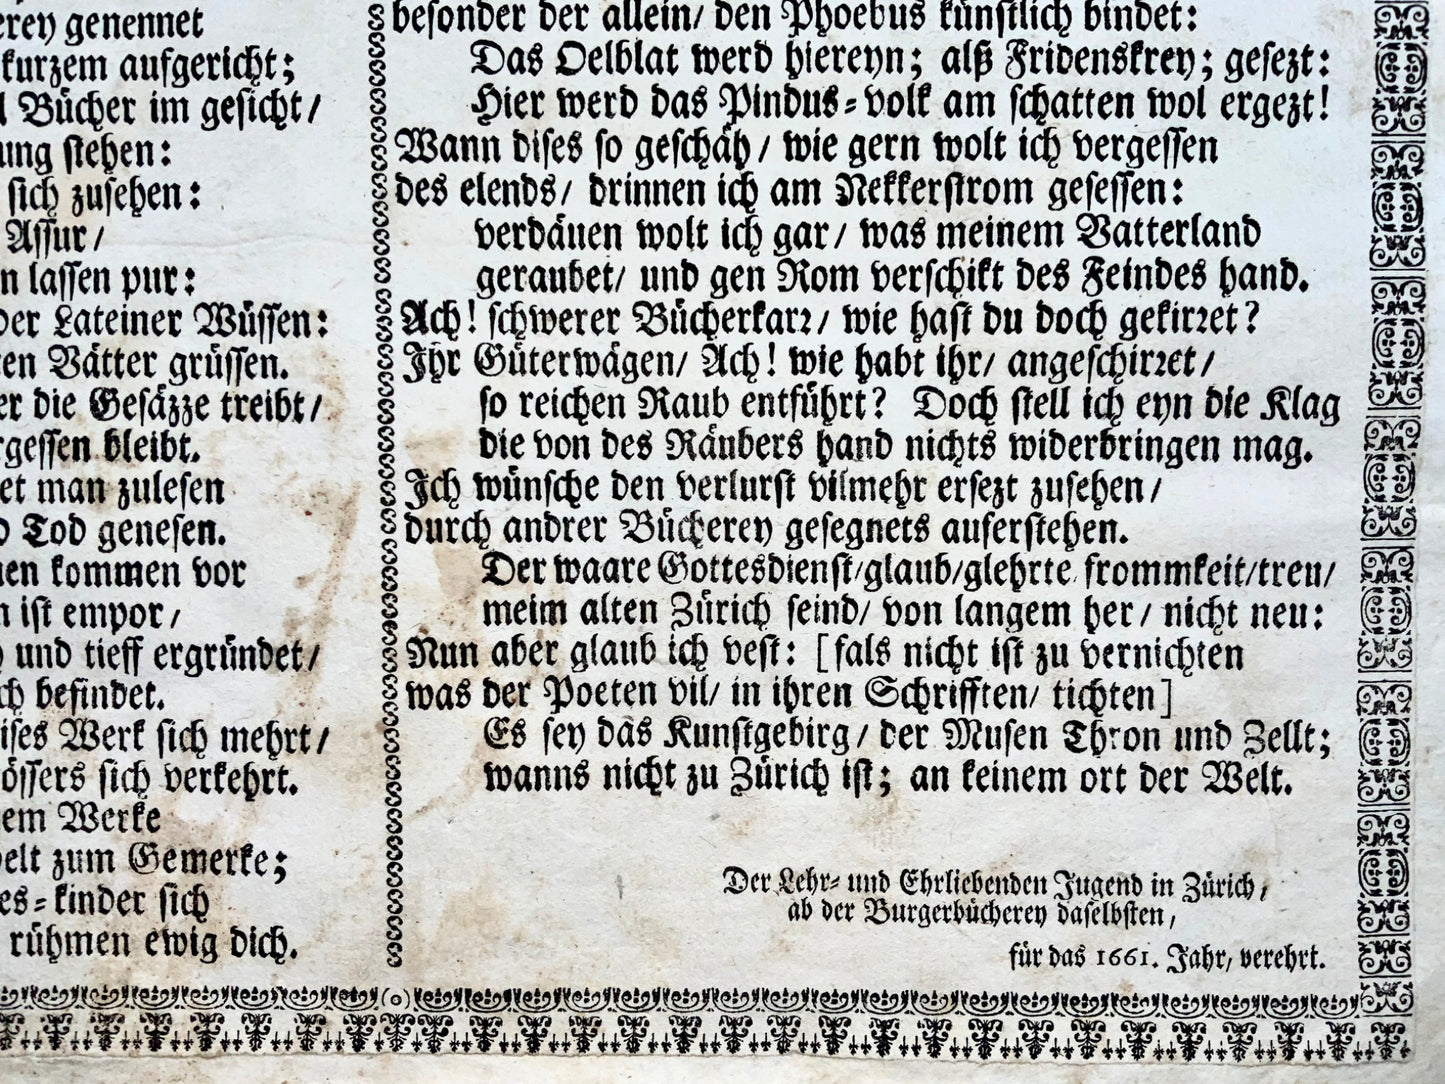 erey genennet
kurzem aufgericht;
l Bücher im gesicht/
ung stehen:
sich zusehen:
Assur/
n lassen pur:
der Lateiner Wüssen:
en Vätter grüssen.
er die Gesäzze treibt/
rgessen bleibt.
et man zulesen
d Tod genesen.
nen kommen vor
n ist empor/
und tieff ergründet/
ch befindet.
ises Werk sich mehrt/
össers sich verkehrt.
em Werke
elt zum Gemerke;
es-kinder sich
rühmen ewig dich.
besonder der allein/ den Phoebus künstlich bindet:
Das Oelblat werd hiereyn; alß Fridenskrey; gesezt:
Hier werd das Pindus-volk am schatten wol ergezt!
Wann dises so geschäh/ wie gern wolt ich vergessen
des elends/ drinnen ich am Nekkerstrom gesessen:
verdäuen wolt ich gar/ was meinem Vatterland
geraubet/ und gen Rom verschikt des Feindes hand.
Ach! schwerer Bücherkarr/ wie hast du doch gekirret?
Ihr Güterwägen/ Ach! wie habt ihr/ angeschirret/
so reichen Raub entführt? Doch stell ich eyn die Klag
die von des Räubers hand nichts widerbringen mag.
Ich wünsche den verlurst vilmehr ersezt zusehen/
durch andrer Bücherey gesegnets auferstehen.
Der waare Gottesdienst/glaub/glehrte frommkeit/treu/
meim alten Zürich seind/ von langem her/ nicht neu:
Nun aber glaub ich vest: [fals nicht ist zu vernichten
was der Poeten vil/ in ihren Schrifften/ tichten]
Es sey das Kunstgebirg/ der Musen Thron und Zellt;
wanns nicht zu Zürich ist; an keinem ort der Welt.
Der Lehr- und Ehrliebenden Jugend in Zürich,
ab der Burgerbücherey daselbsten,
für das 1661. Jahr, verehrt.